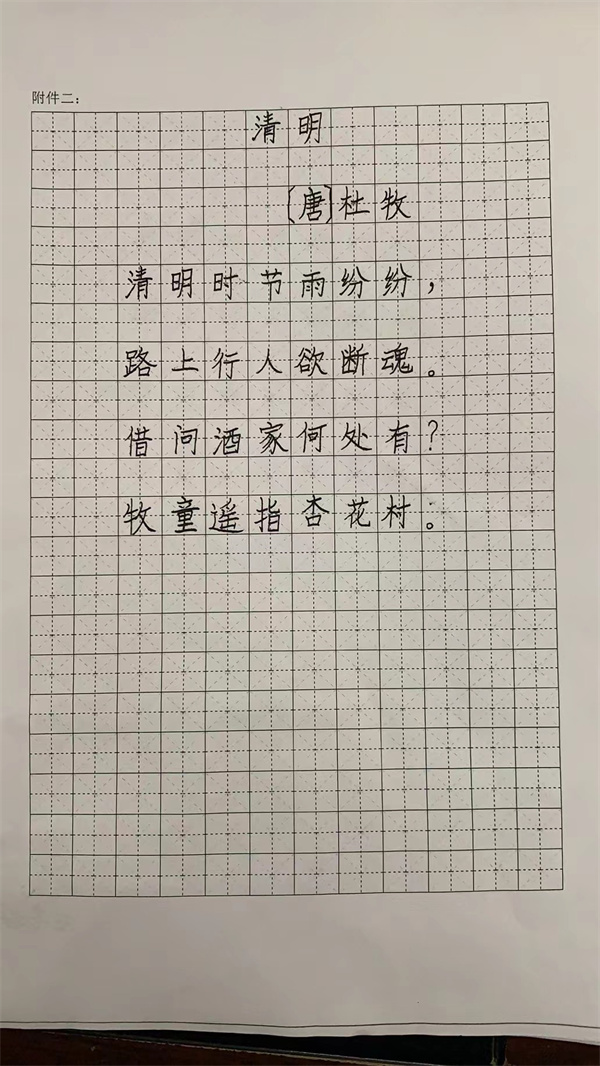 附件二：
清明
[唐]杜牧
清明时节雨纷纷，
路上行人欲断魂。
借问酒家何处有？
牧童遥指杏花村。